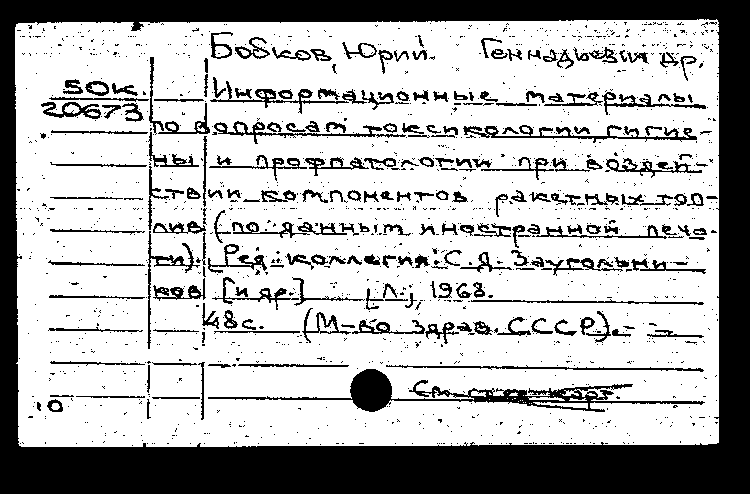 Бобков, Юрий Геннадьевич др.
50к.
20673
Информационные материалы
по вопросам токсикологии, гигие-
ны и профпатологии при воздей-
ствии компонентов ракетных топ-
лив (по данным иностранной печа-
ти). Ред. коллегия: С.Д. Заугольни-
ков [и др.] [Л.], 1968.
48с. (М-во здрав. СССР). —
См. карт.
10